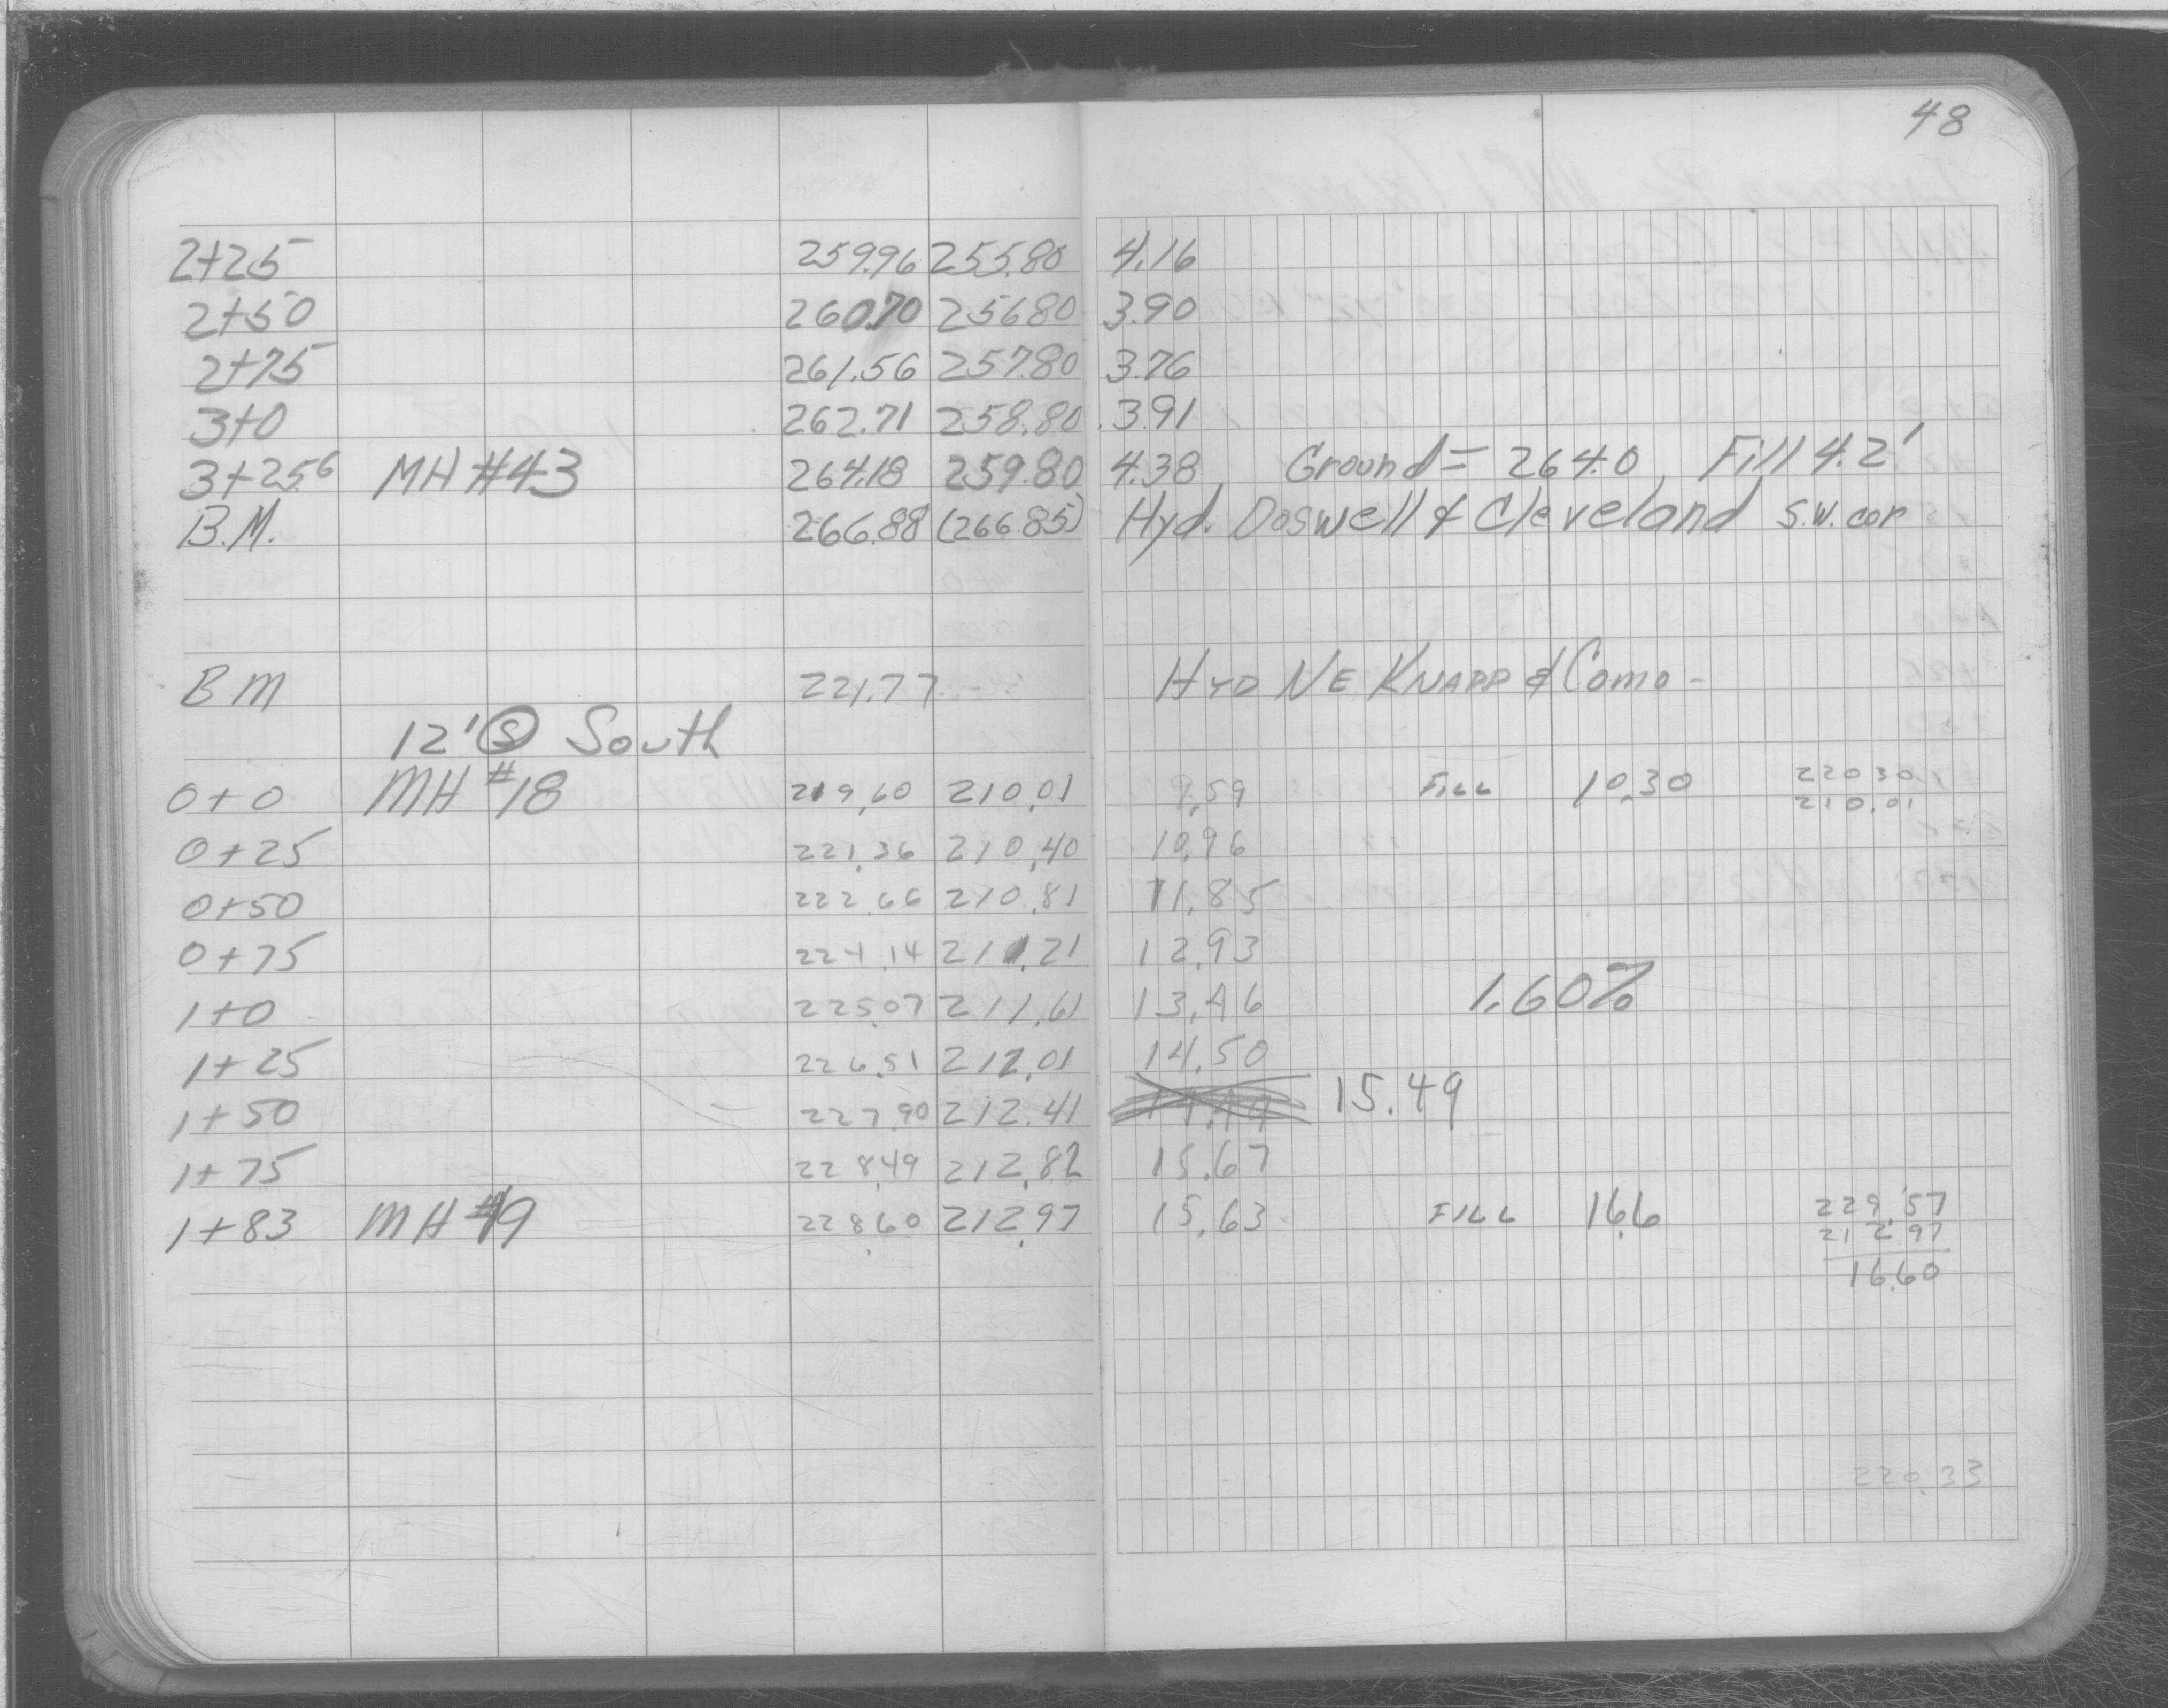 48
2+25 259.96 255.80 4.16
2+50 260.70 256.80 3.90
2+75 261.56 257.80 3.76
3+0 262.71 258.80 3.91
3+25.6 MH #43 264.18 259.80 4.38 Ground = 264.0, Fill 4.2'
B.M. 266.88 (266.85) Hyd. Doswell & Cleveland S.W. cor
BM 221.77 HYD NE KNAPP & Como -
12' Ⓢ South
0+0 MH #18 219.60 210.01 9.59 FILL 10.30 220 30
210.01
0+25 221.36 210.40 10.96
0+50 222.66 210.81 11.85
0+75 224.14 211.21 12.93
1+0 225.07 211.61 13.46 1.60%
1+25 226.51 212.01 14.50
1+50 227.90 212.41 15.49
1+75 228.49 212.82 15.67
1+83 MH #19 228.60 212.97 15.63 FILL 16.6 229.57
212 97
16.60
220.33